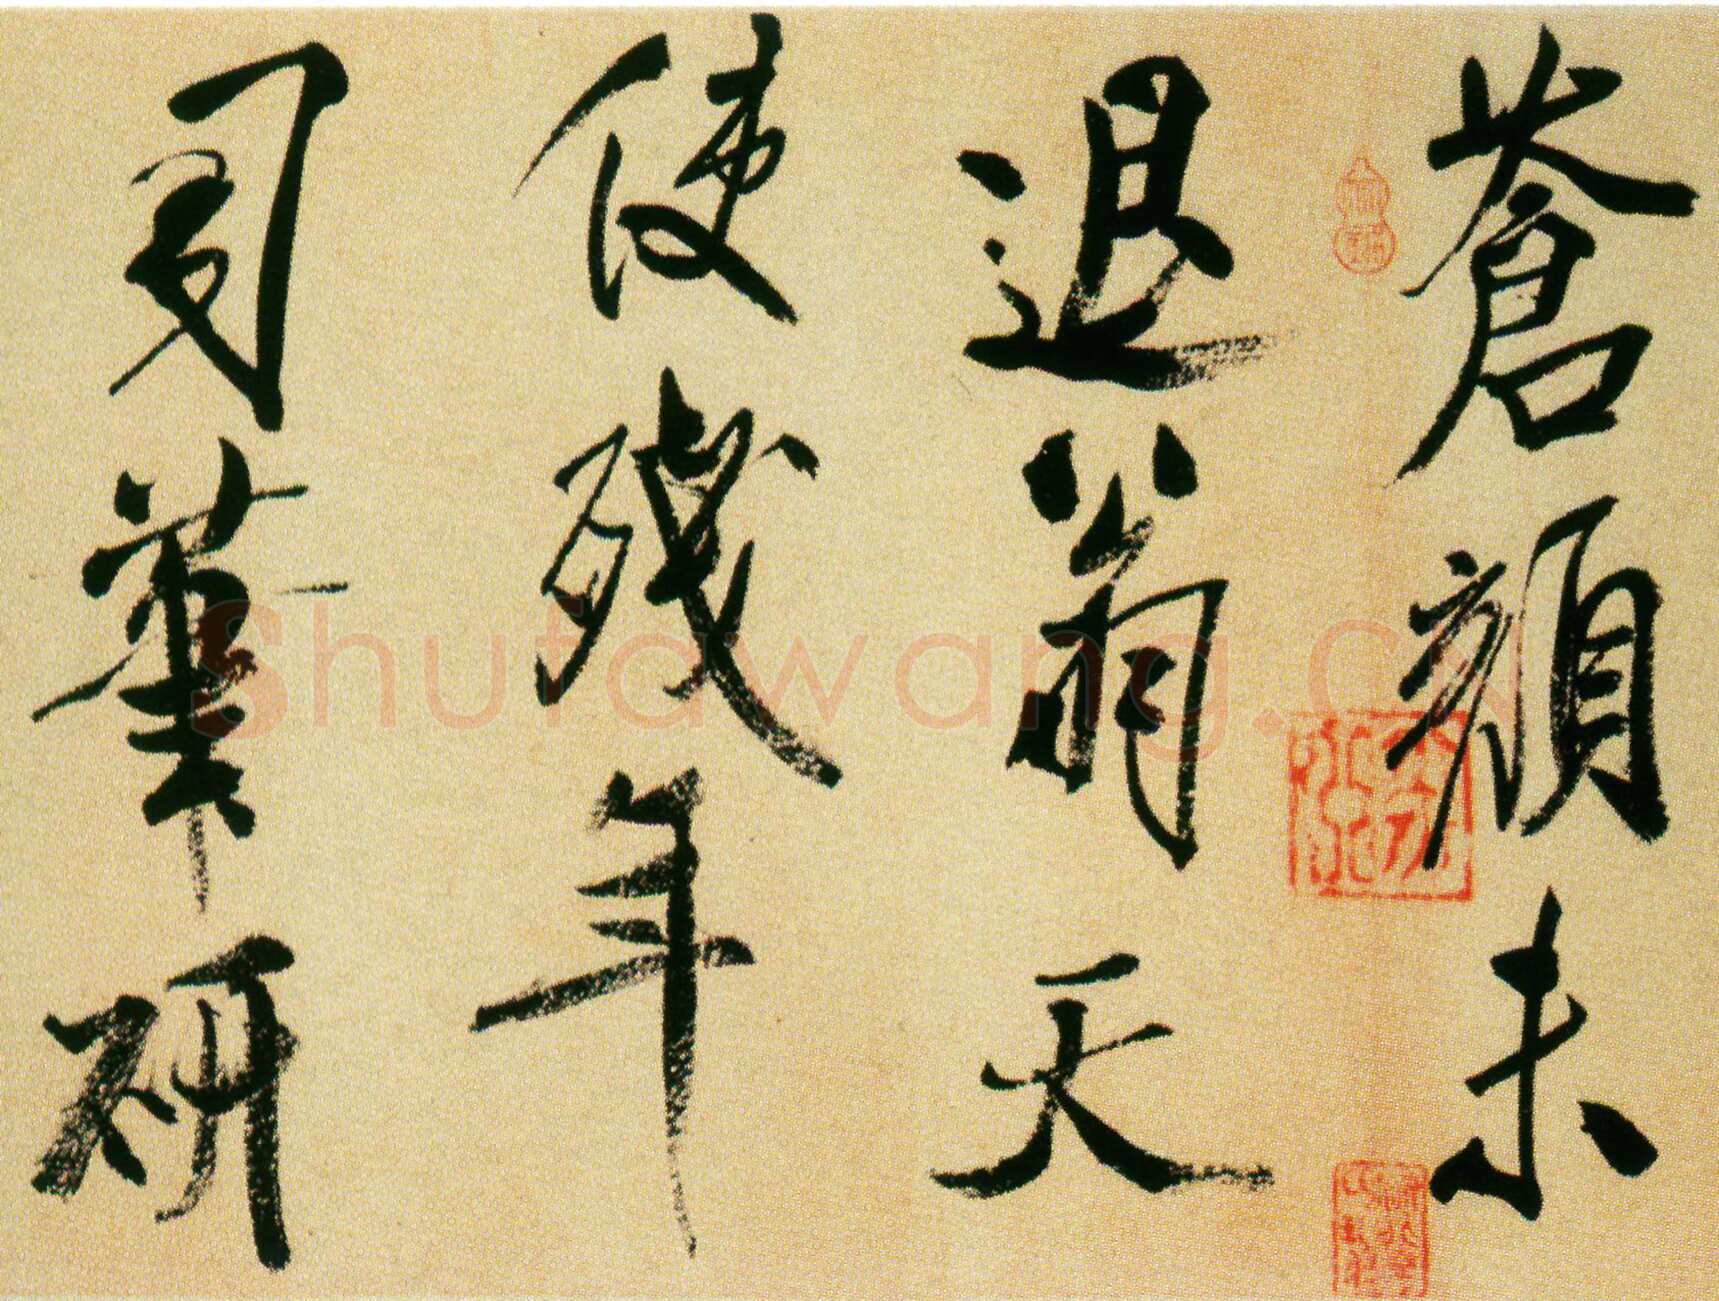 蒼顏未
退翁天
使殘年
司筆研
Shufawang.CN